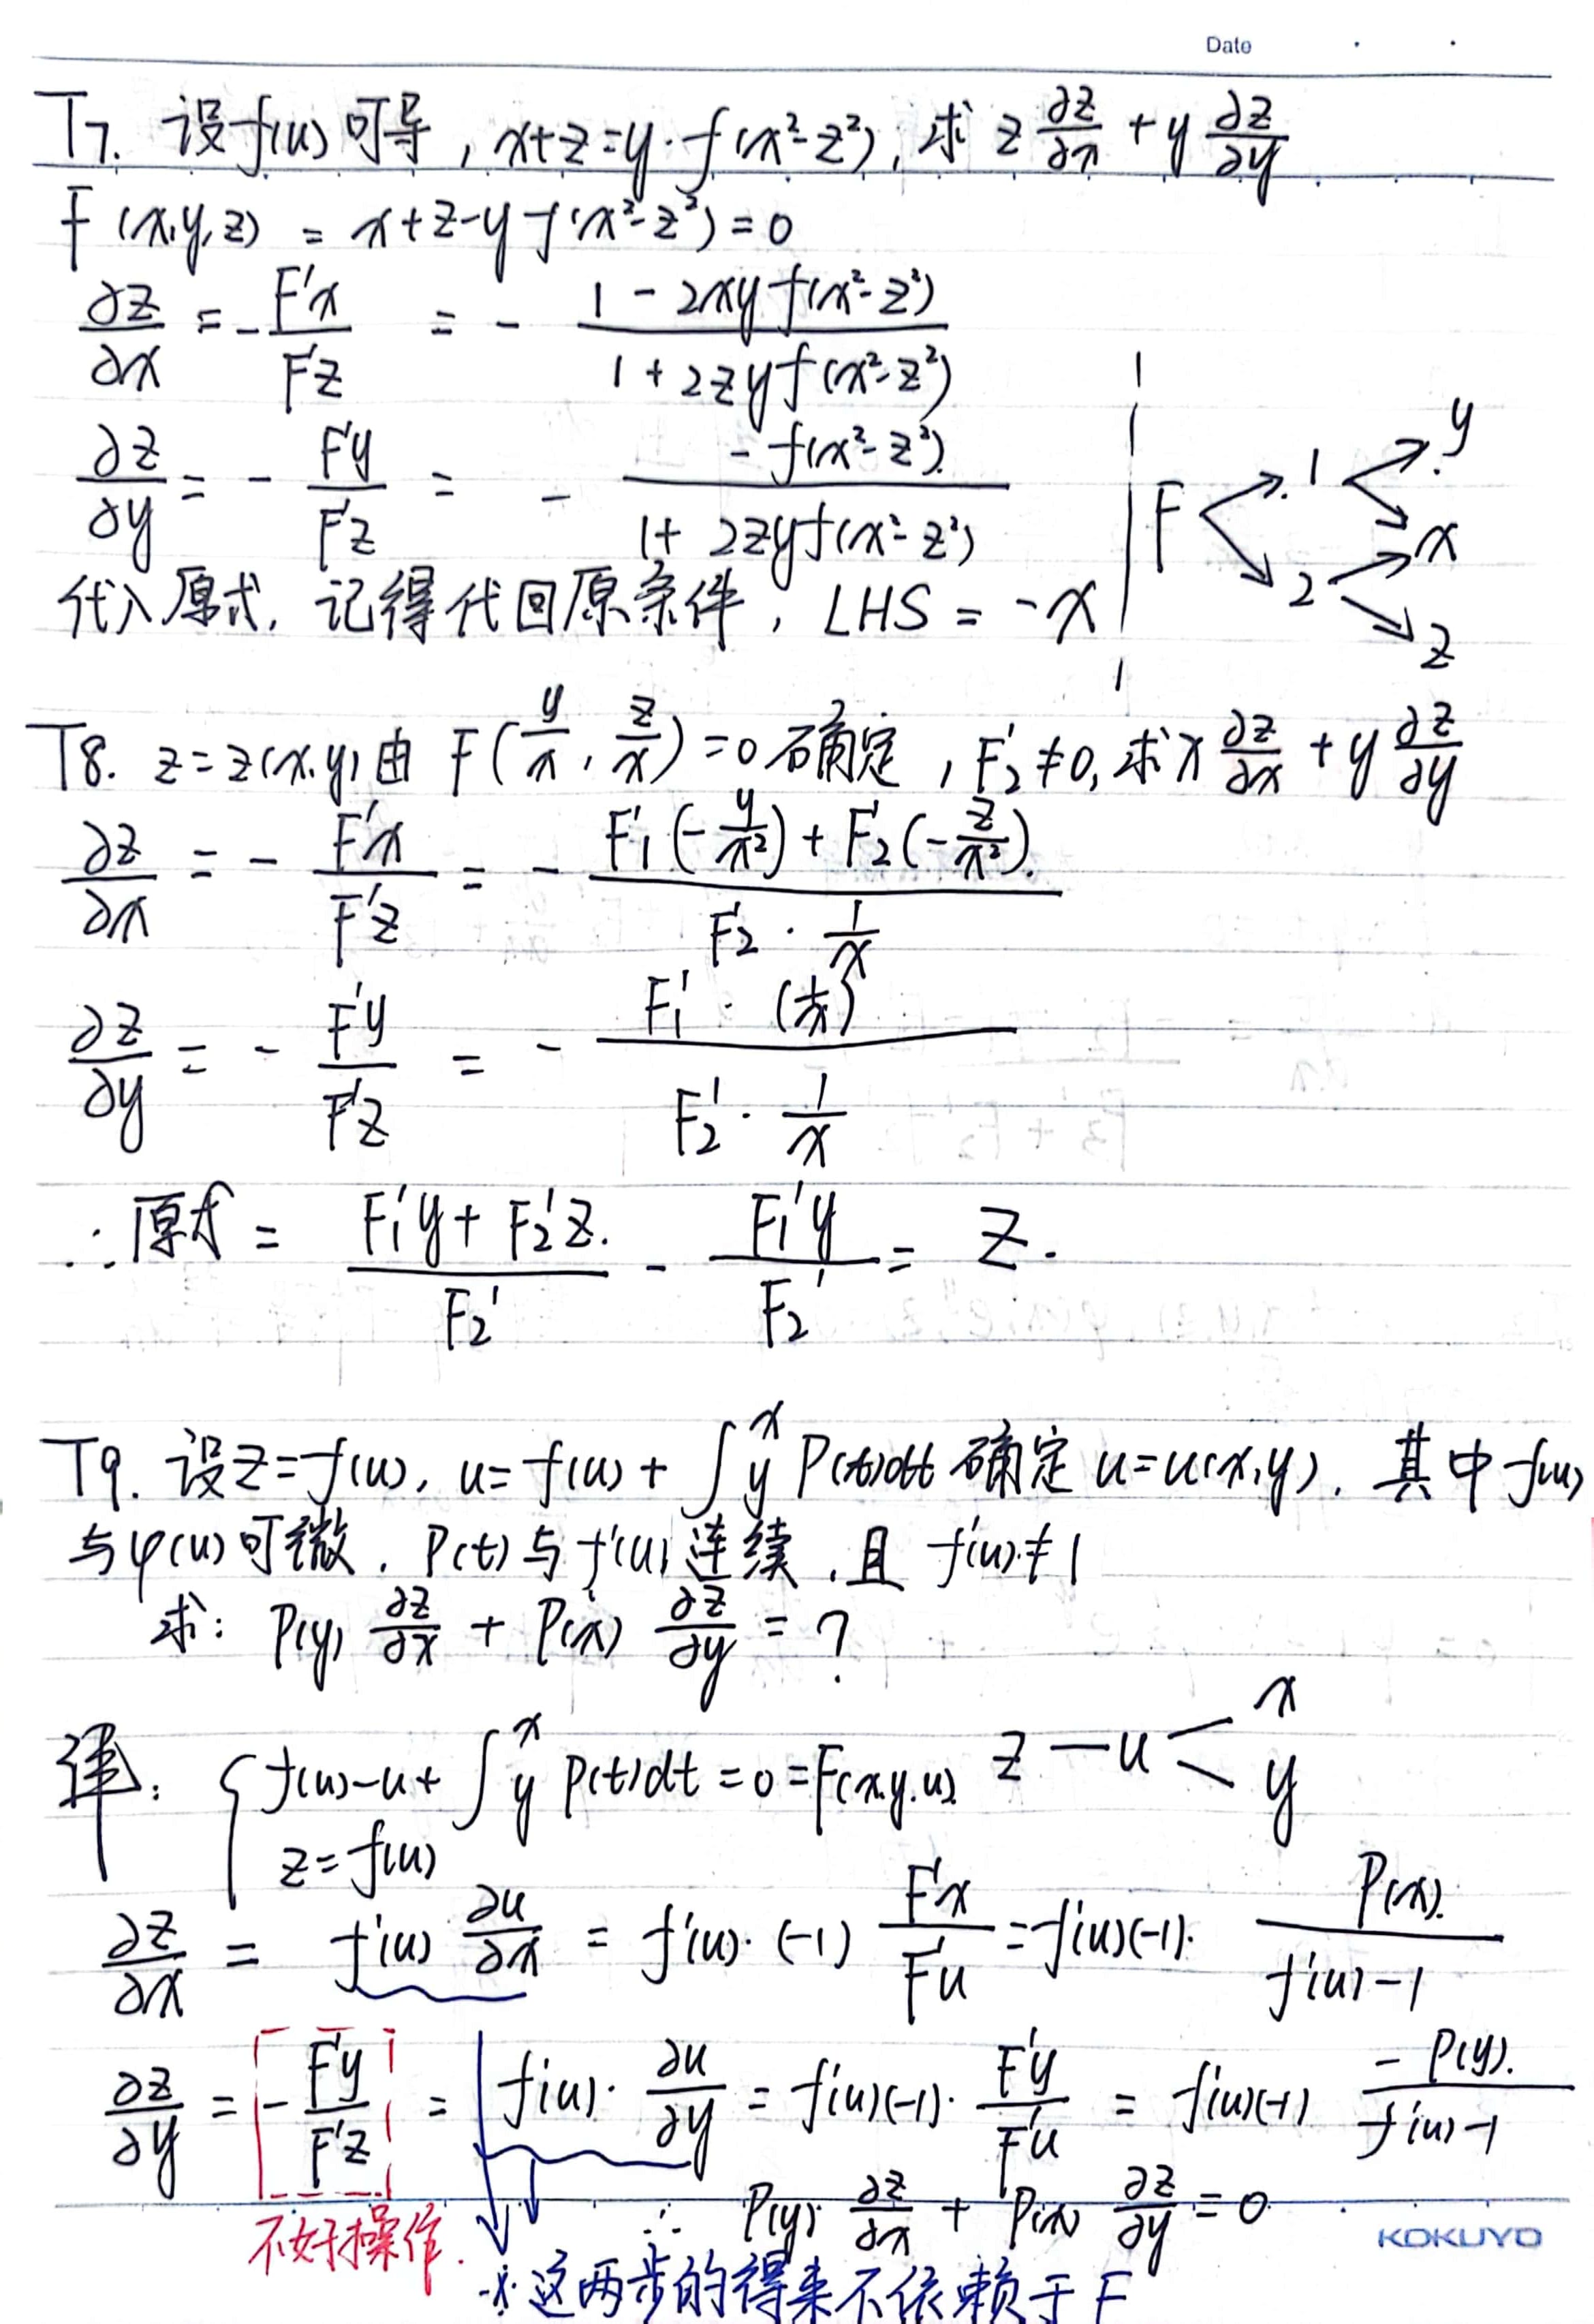 Date
T7. 设f(u)可导, x+z=y·f(x²-z²), 求 z ∂z/∂x + y ∂z/∂y
F(x,y,z) = x+z-yf(x²-z²)=0
∂z/∂x = -F'x/F'z = - (1-2xyf(x²-z²))/(1+2zyf(x²-z²))
∂z/∂y = - F'y/F'z = - (-f(x²-z²))/(1+2zyf(x²-z²))
F 1 y x 2 x z
代入原式, 记得代回原条件, LHS = -x
T8. z=z(x,y)由 F(y/x, z/x)=0确定, F'₂≠0, 求x ∂z/∂x + y ∂z/∂y
∂z/∂x = - F'x/F'z = - (F'₁(-y/x²)+F'₂(-z/x²))/(F'₂·1/x)
∂z/∂y = - F'y/F'z = - (F₁'·(1/x))/(F₂'·1/x)
∴原式 = (F₁'y+F₂'z)/F₂' - F₁'y/F₂' = z.
T9. 设z=f(u), u=f(u)+∫_y^x P(t)dt 确定 u=u(x,y). 其中f(u)
与φ(u)可微. P(t)与f'(u)连续.且 f'(u)≠1
求: P(y) ∂z/∂x + P(x) ∂z/∂y = ?
译: { f(u)-u+∫_y^x P(t)dt=0=F(x.y.u) z—u< x y
z=f(u)
∂z/∂x = f'(u) ∂u/∂x = f'(u)·(-1) F'x/F'u = f'(u)(-1)· P(x)/(f'(u)-1)
∂z/∂y = -F'y/F'z = f'(u)·∂u/∂y = f'(u)(-1)·F'y/F'u = f'(u)(-1) -P(y)/(f'(u)-1)
不好操作.
∴ P(y) ∂z/∂x + P(x) ∂z/∂y = 0
KOKUYO
※这两步的得来不依赖于F